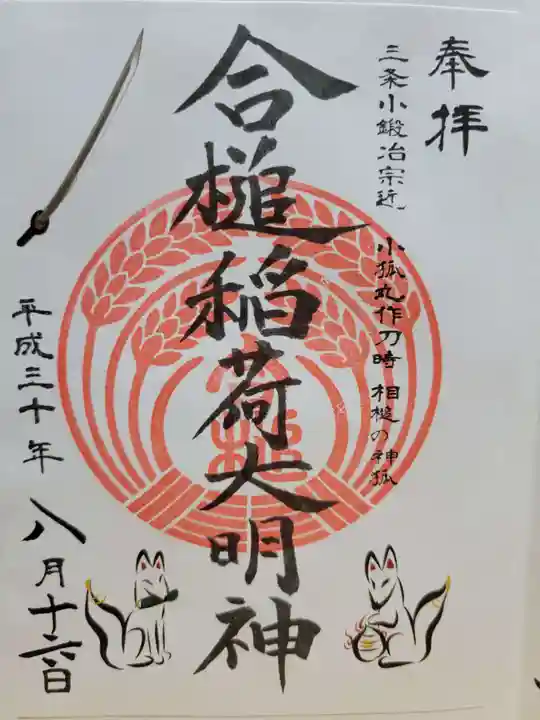 奉拝
三条小鍛冶宗近
小狐丸作刀時 相槌の神狐
合槌稲荷大明神
平成三十年
八月十六日